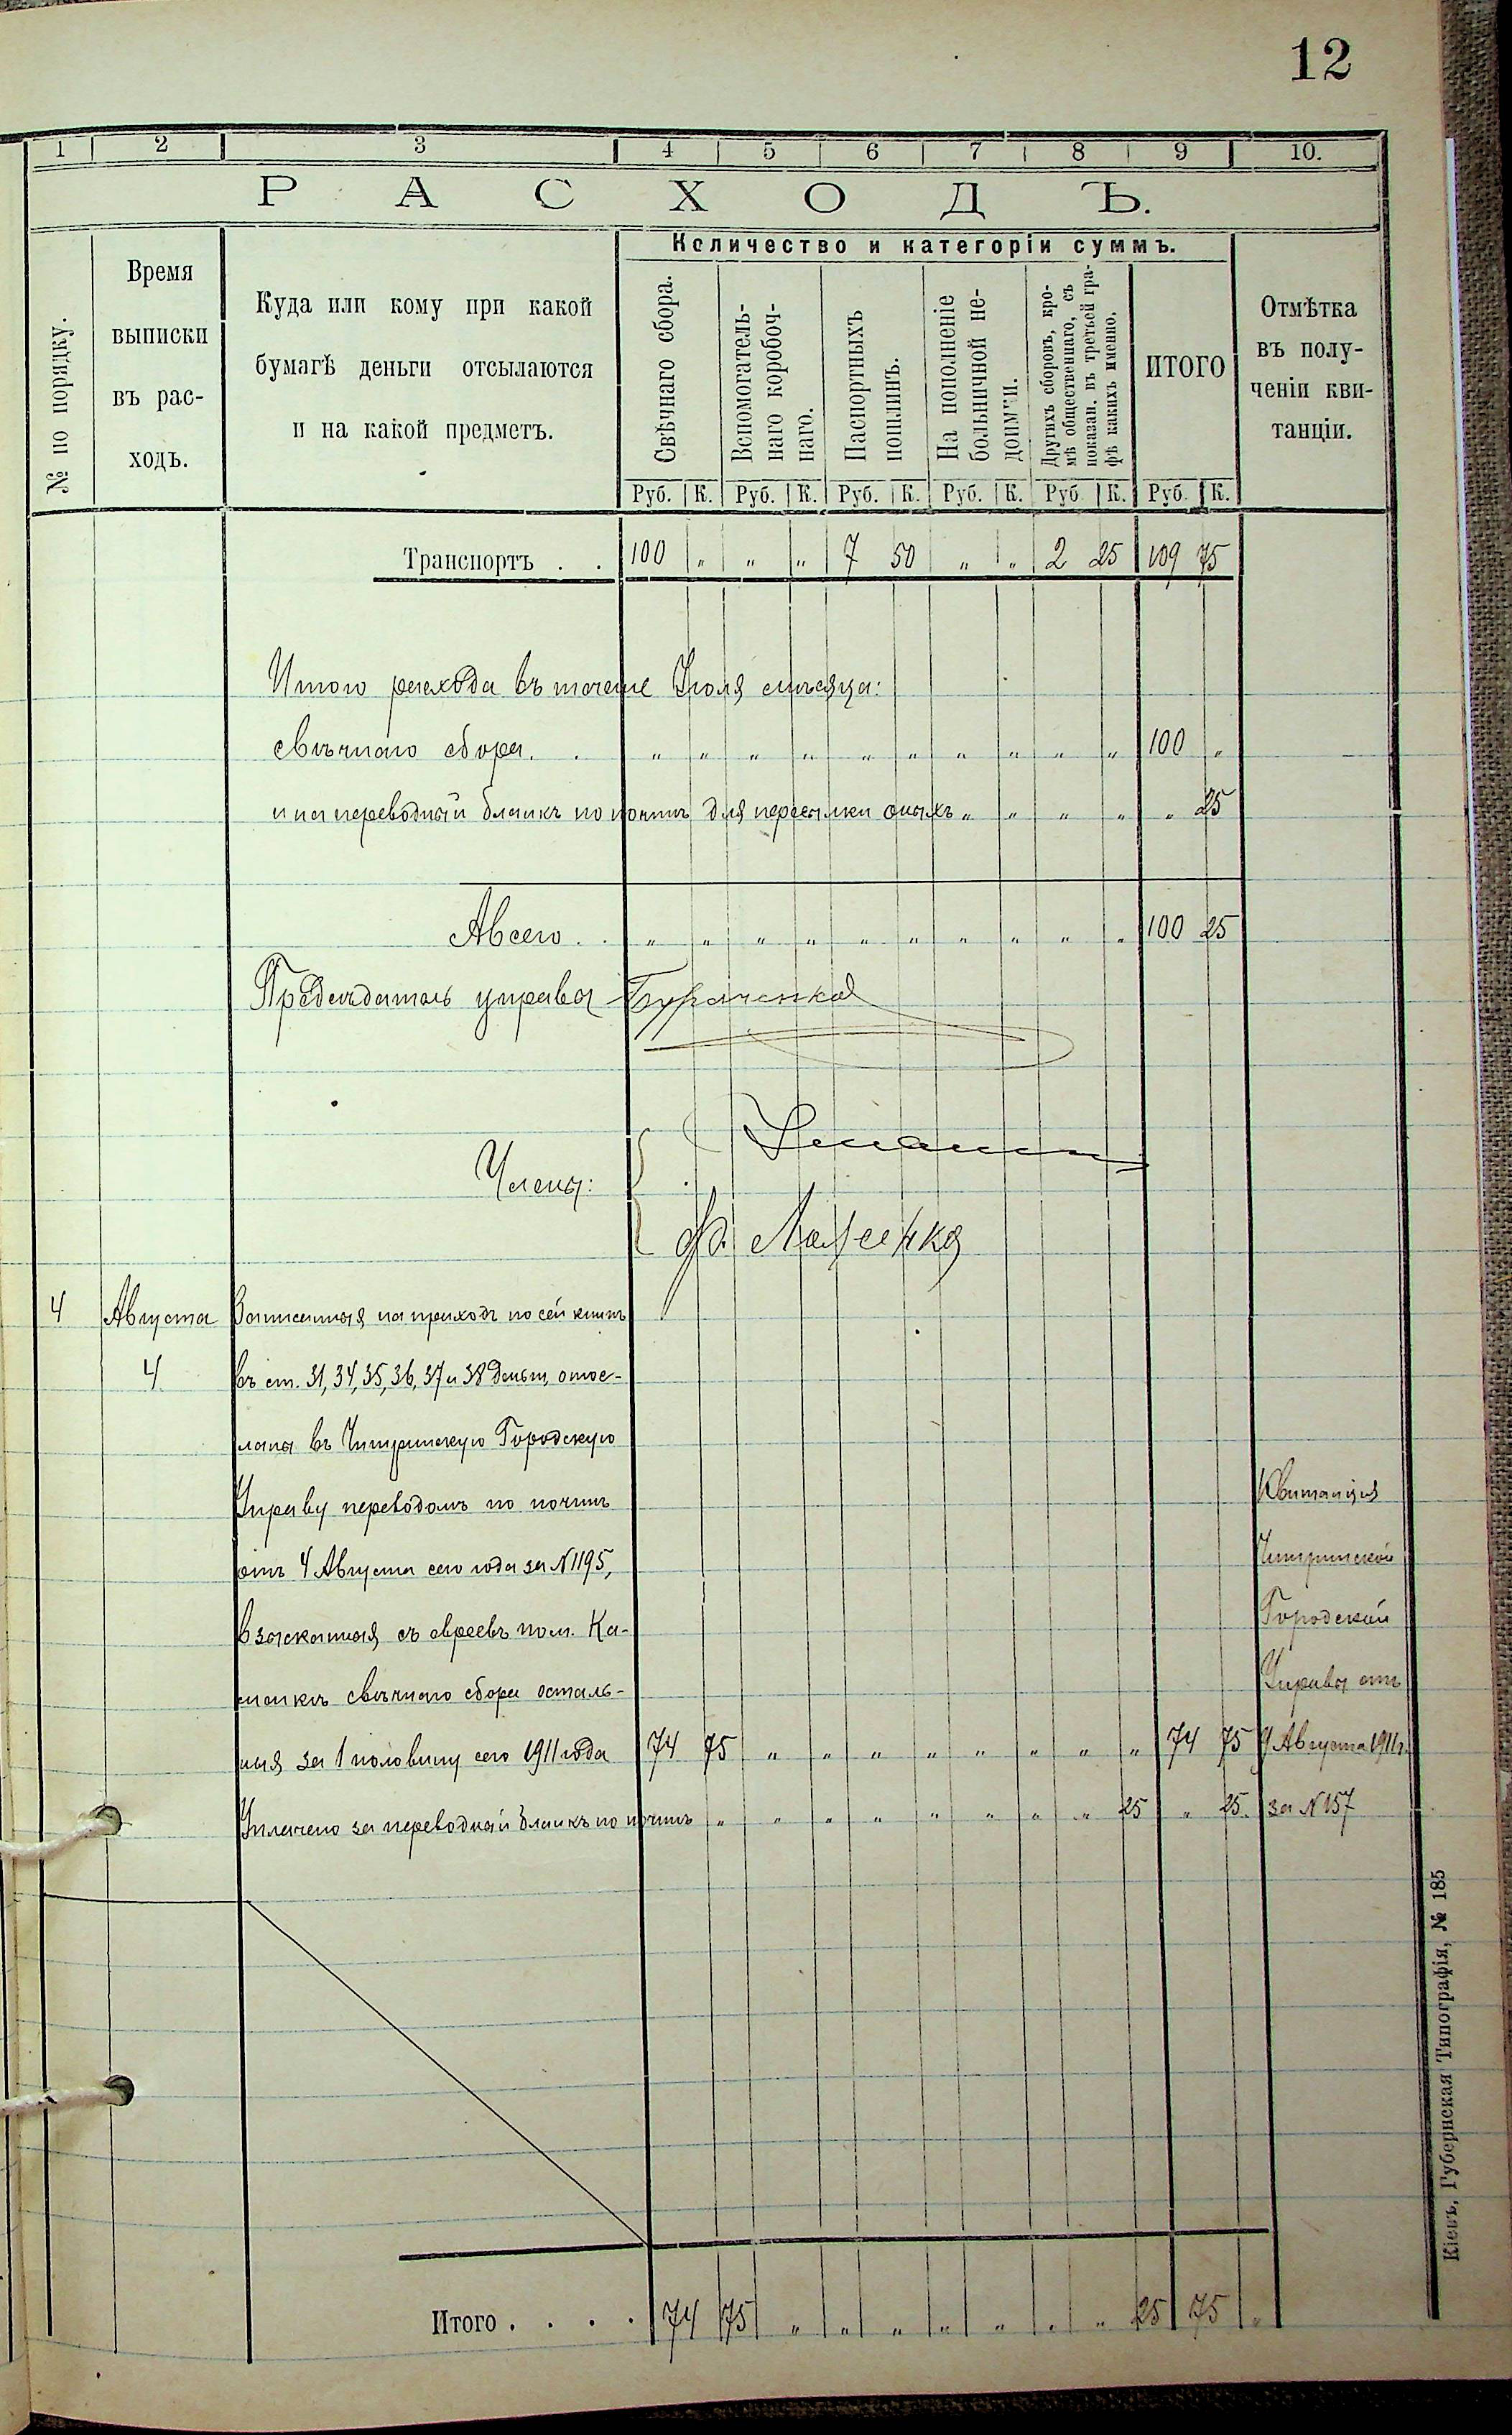 12
1 2 3 4 5 6 7 8 9 10.
РАСХОДЪ.
№ по порядку.
Время
выписки
въ рас-
ходъ.
Куда или кому при какой
бумагѣ деньги отсылаются
и на какой предметъ.
Количество и категоріи суммъ.
Свѣчнаго сбора.
Вспомогатель-
наго коробоч-
наго.
Паспортныхъ
пошлинъ.
На пополненіе
больничной не-
доимки.
Другихъ сборовъ, кро-
мѣ общественнаго, съ
показан. въ третьей гра-
фѣ какихъ именно.
ИТОГО
Отмѣтка
въ полу-
ченіи кви-
танціи.
Руб. К. Руб. К. Руб. К. Руб. К. Руб К. Руб. К.
Транспортъ . . 100 „ „ „ 7 50 „ „ 2 25 109 75
Итого расхода въ течение Іюля мѣсяца:
свѣчного сбора . . „ „ „ „ „ „ „ „ „ „ 100 „
и на переводный бланкъ по почтѣ для пересылки оныхъ „ „ „ „ „ 25
А всего . . „ „ „ „ „ „ „ „ „ „ 100 25
Предсѣдатель управы
Члены:
4 Августа Записанныя на приходъ по сей книгѣ
4 въ ст. 31, 34, 35, 36, 37 и 38 деньги, отос-
ланы въ Чигиринскую Городскую
Управу переводомъ по почтѣ
отъ 4 Августа сего года за N 1195,
взысканныя съ евреевъ пом. Ка-
менкъ свѣчного сбора осталь-
ныя за 1 половину сего 1911 года 74 75 „ „ „ „ „ „ „ „ 74 75
Уплачено за переводный бланкъ по почтѣ „ „ „ „ „ „ „ „ 25 „ 25.
Квитанция
Чигиринской
Городской
Управы отъ
9 Августа 1911 г.
за N 157
Итого . . . . 74 75 „ „ „ „ „ „ „ 25 75 „
Кіевъ, Губернская Типографія, № 185